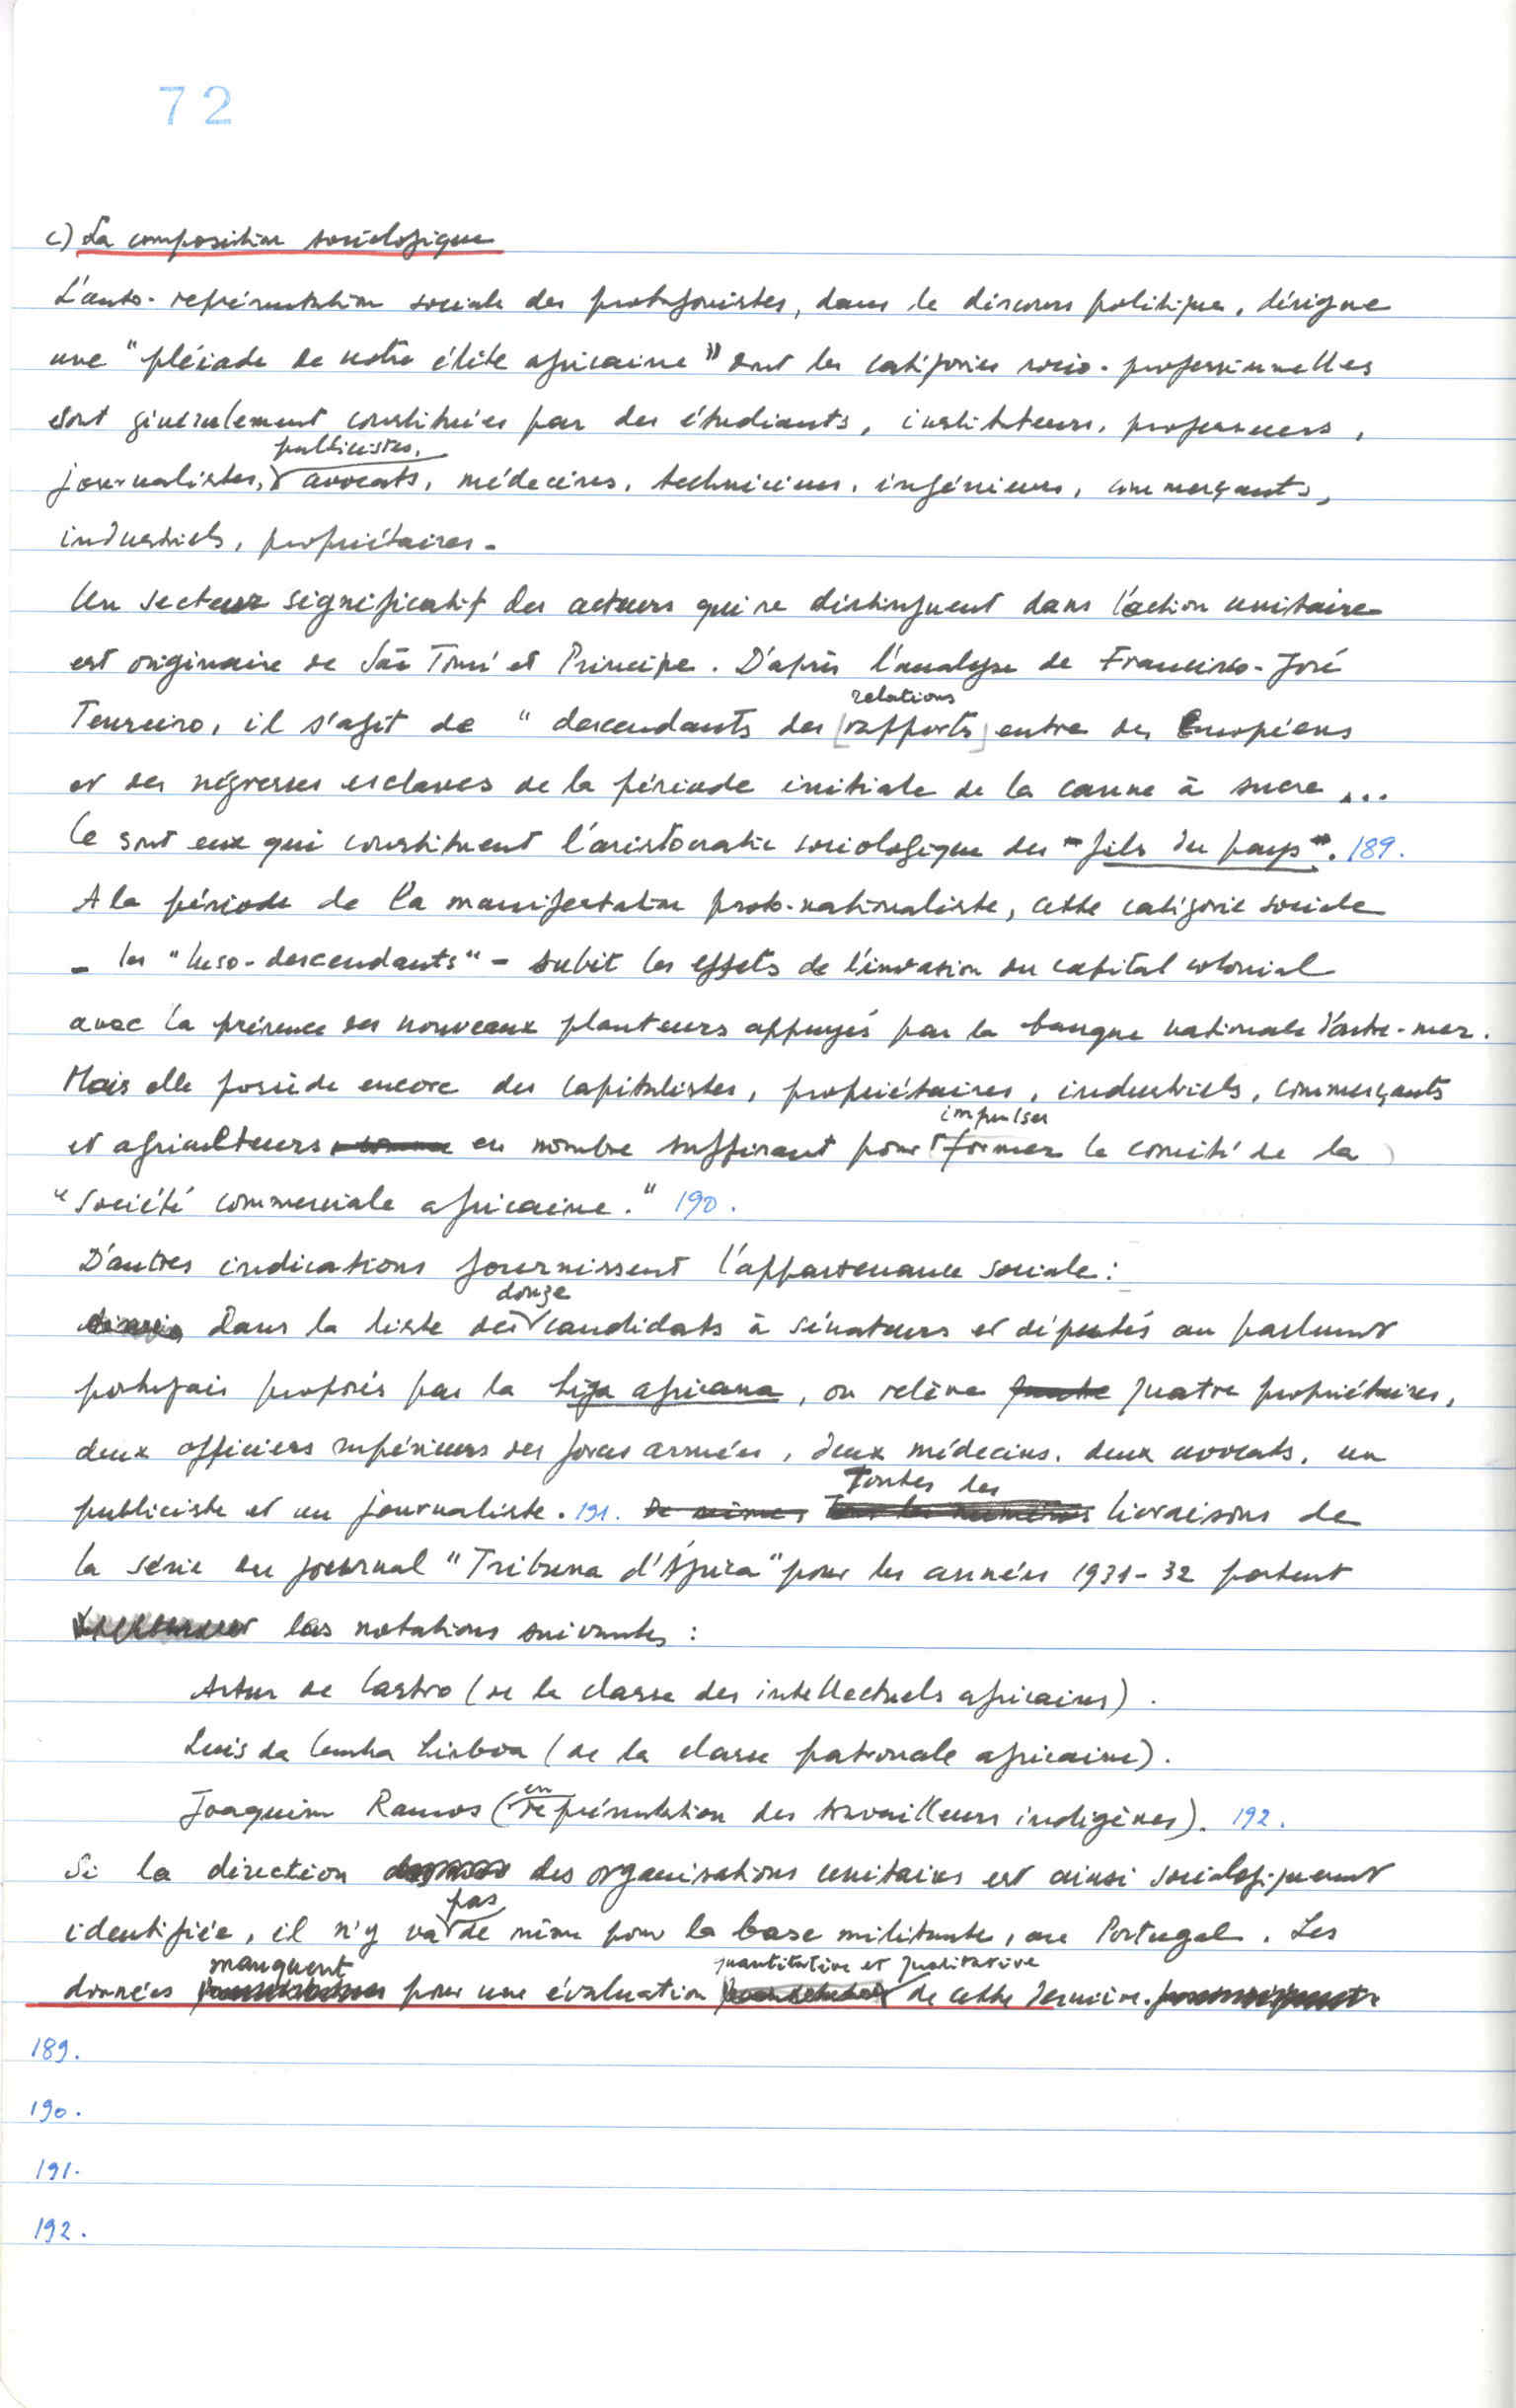 72
c) La composition sociologique
L'auto-représentation sociale des protagonistes, dans le discours politique, désigne
une "pléiade de notre élite africaine" dont les catégories socio-professionnelles
sont généralement constituées par des étudiants, instituteurs, professeurs,
publicistes,
journalistes, avocats, médecins, techniciens, ingénieurs, commerçants,
industriels, propriétaires.
Un secteur significatif des acteurs qui se distinguent dans l'action unitaire
est originaire de São Tomé et Principe. D'après l'analyse de Francisco-José
relations
Tenreiro, il s'agit de "descendants des [rapports] entre des Européens
et des négresses esclaves de la période initiale de la canne à sucre...
Ce sont eux qui constituent l'aristocratie sociologique des "fils du pays". 189.
A la période de la manifestation proto-nationaliste, cette catégorie sociale
- les "luso-descendants" - subit les effets de l'invasion du capital colonial
avec la présence des nouveaux planteurs appuyés par la banque nationale d'outre-mer.
Mais elle possède encore des capitalistes, propriétaires, industriels, commerçants
impulser
et agriculteurs en nombre suffisant pour former le comité de la
"Société commerciale africaine." 190.
D'autres indications fournissent l'appartenance sociale:
douze
Dans la liste des candidats à sénateurs et députés au parlement
portugais proposés par la Liga africana, on relève quatre propriétaires,
deux officiers supérieurs des forces armées, deux médecins, deux avocats, un
Toutes les
publiciste et un journaliste. 191. De même Tous les numéros livraisons de
la série du journal "Tribuna d'África" pour les années 1931-32 portent
les notations suivantes :
Artur de Castro (de la classe des intellectuels africains).
Luis da Cunha Lisboa (de la classe patronale africaine).
en
Joaquim Ramos (représentation des travailleurs indigènes). 192.
Si la direction des organisations unitaires est ainsi sociologiquement
pas
identifiée, il n'y va de même pour la base militante, au Portugal. Les
manquent quantitative et qualitative
données pour une évaluation de cette dernière.
189.
190.
191.
192.